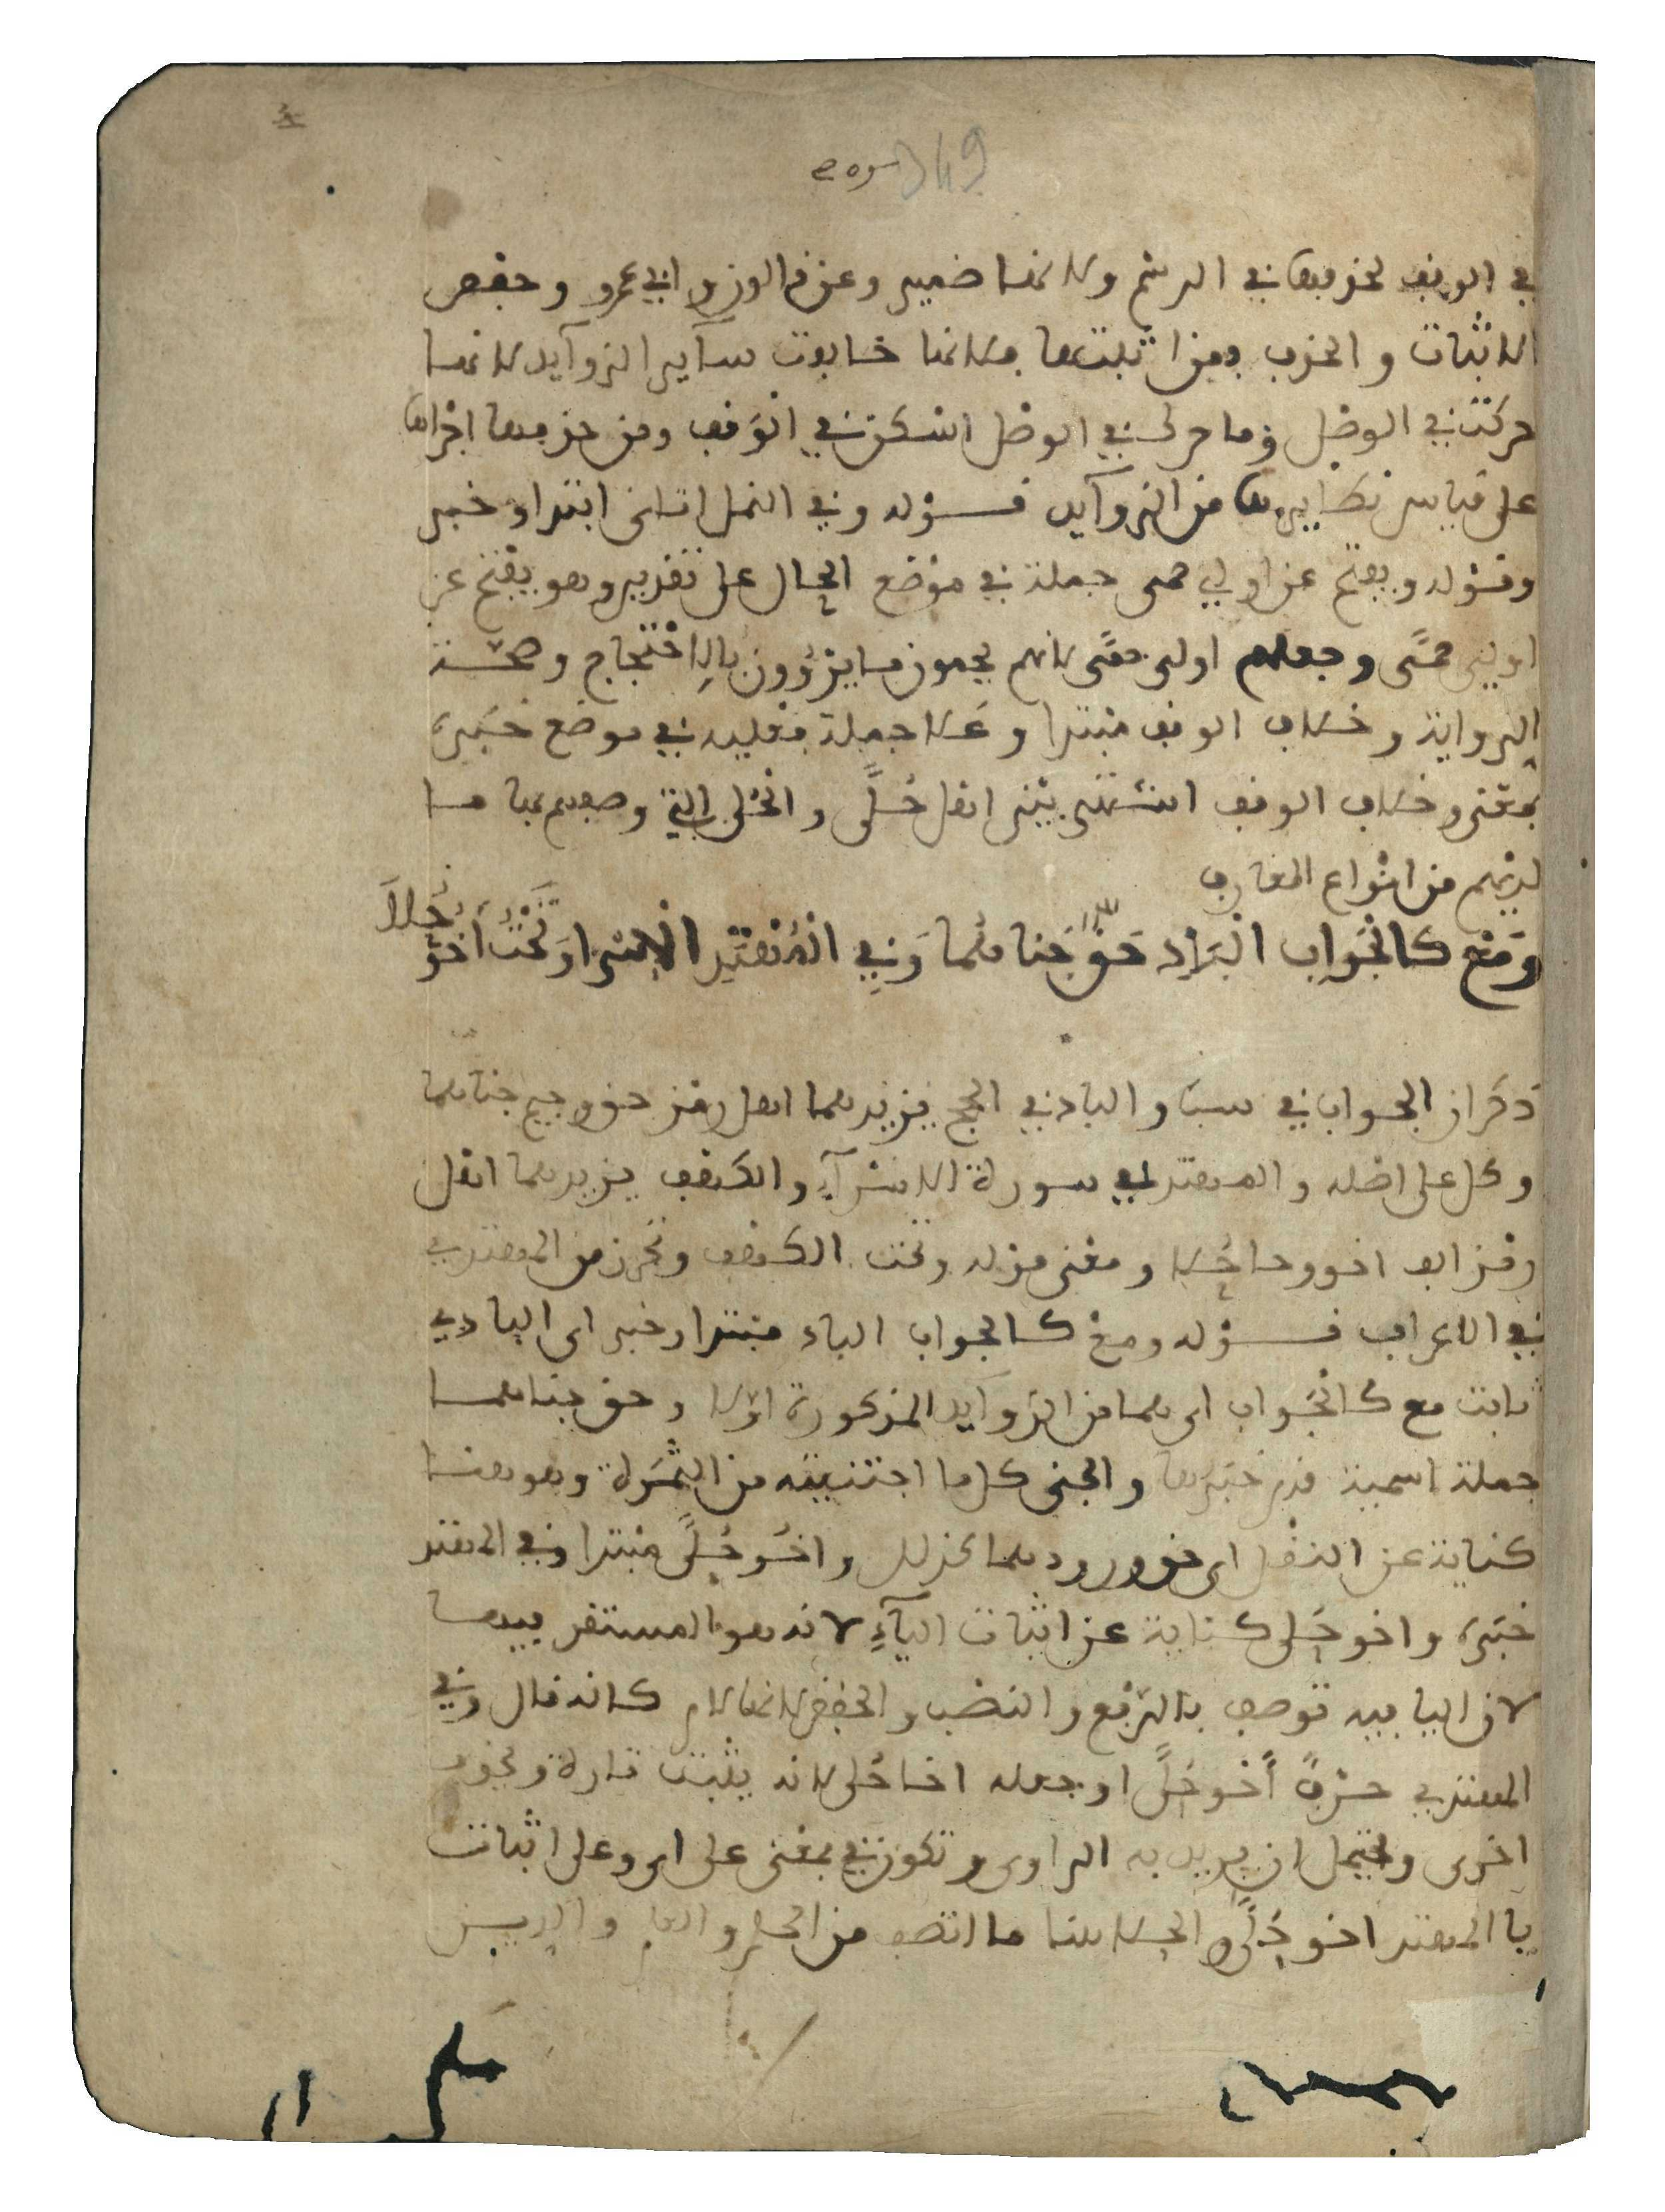 349
في الوقف لحذفها في الرسم ولانها ضمير وعن قالون وابي عمرو وحفص
الاثبات والحذف فمن اثبتها فلانها خالفت سآير الزوآيد لانها
حركت في الوصل وما حرك في الوصل اسكن في الوقف ومن حذفها اجراها
على قياس نظايرها من الزوآيد قوله وفي النمل اتاني ابتدا وخبر
وقوله ويفتح عن اولي حمى جملة في موضع الحال على تقدير وهو يفتح عن
اولي حمًى وجعلهم اولي حمًى لانهم يحمون ما يقرؤون بالاحتجاج وصحة
الرواية وخلاف الوقف مبتدا وعلا جملة فعلية في موضع خبره
بمعنى وخلاف الوقف اشتهر بين اهل حُلًى والحُلى التي وصفهم بها ما
لديهم من انواع المعارف
وَمَعْ كالْجَوَابِ الْبَادِ حَقٌّ جَنَاهُمَا وَفِي الْمُهْتَدِ الْإسْرا وَتَحْتُ أَخُو حُلَا
ذكر ان الجواب في سبا والباد في الحج يزيدهما اهل رمز حق وجيم جناهما
وكل على اصله والمهتد في سورة الاسرآء والكهف يزيدهما اهل
رمز الف اخو وحا حُلا ومعنى قوله وتحت الكهف وتحرز من المهتدي
في الاعراف قوله ومع كالجواب الباد مبتدا وخبر اى البادي
ثابت مع كالجواب اى هما من الزوآيد المذكورة اوّلا وحق جناهما
جملة اسمية قدم خبرها والجنى كل ما اجتنيته من الثمرة وهو هنا
كناية عن النقل اى حق ورودهما كذلك واخو حُلًى مبتدا وفي المهتد
خبره واخو حُلى كناية عن اثبات اليآء لانه هو المستقر فيهما
لان اليا فيه توصف بالرفع والنصب والخفض لانها لام كانه قال وفي
المهتدي حرفٌ أخو حُلًى او جعله اخا حُلى لانه يثبت تارة ويحذف
اخرى ويحتمل ان يريد به الراوى وتكون في بمعنى على اى وعلى اثبات
يا المهتد اخو حُلًى والحلا هنا ما اتصف من الحلم والعلم والدين